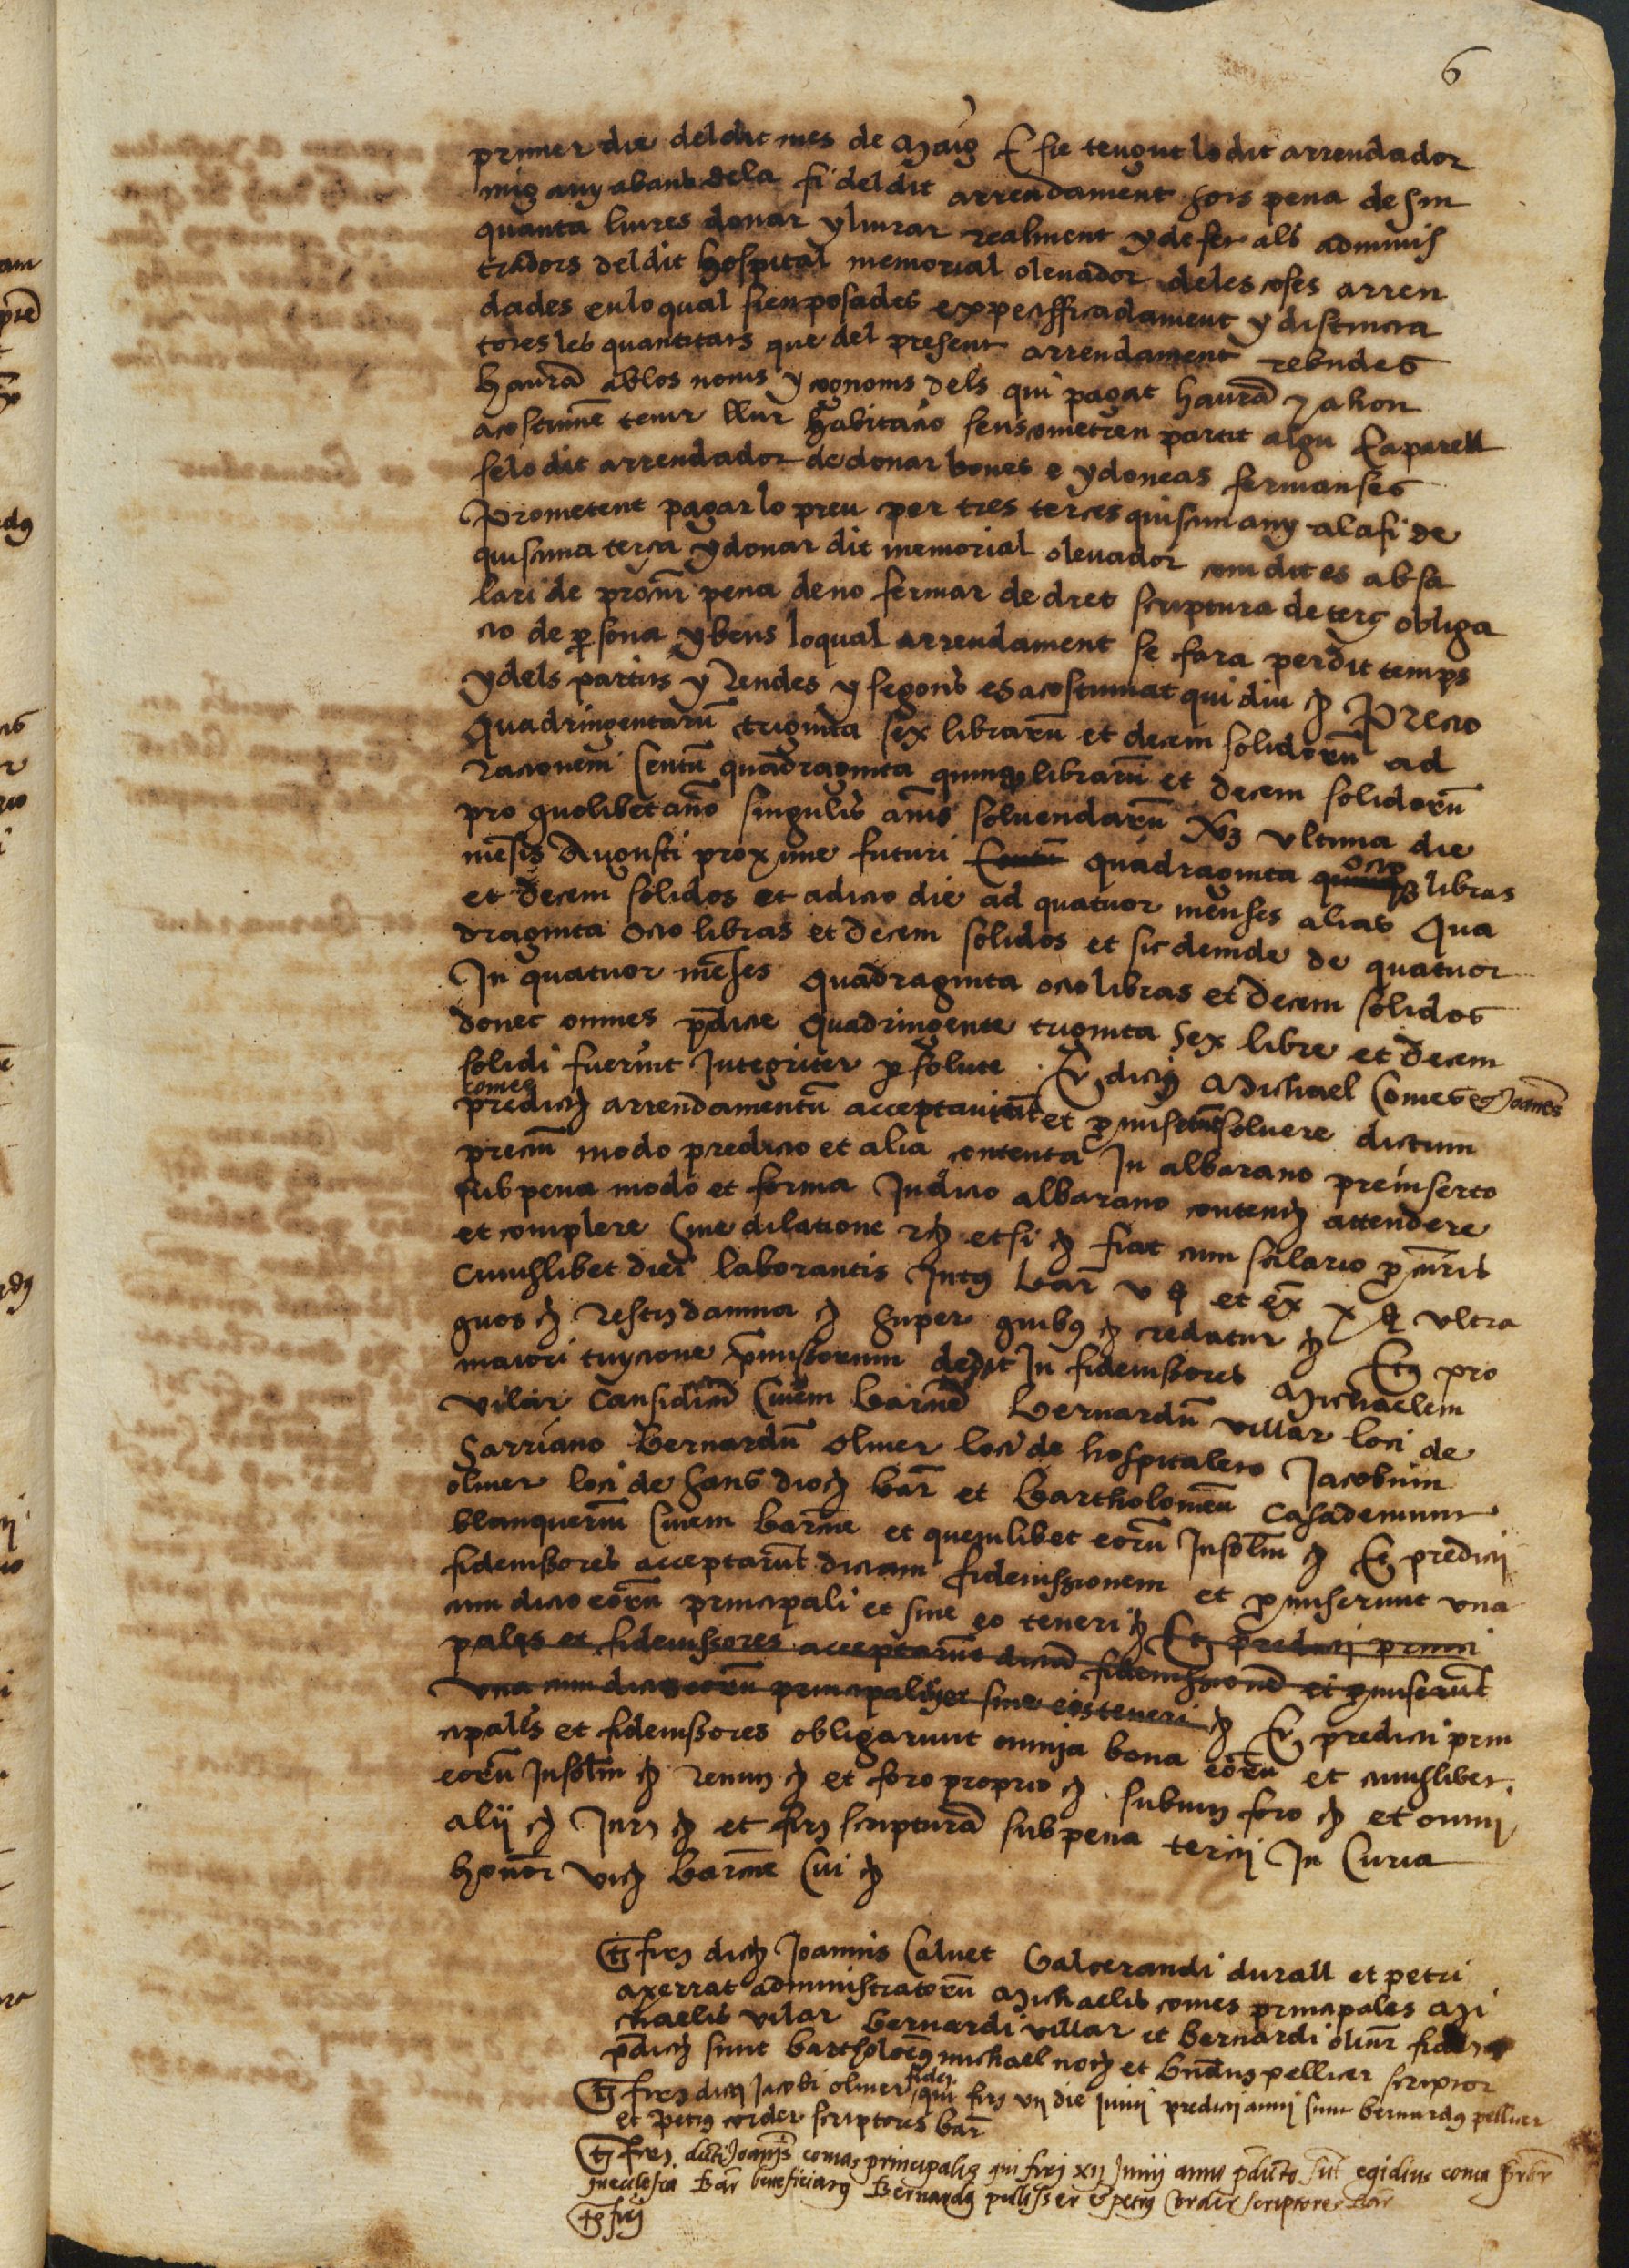 6
primer die del dit mes de Maig E sie tengut lo dit arrendador
mig any abans dela fi del dit arrendament sots pena de sin
quanta liures donar y liurar realment y de fet als adminis
tradors del dit hospital memorial o leuador deles coses arren
dades en lo qual sien posades expecifficadament y distincta
les quantitats que del present arrendament rebudes
haura ab los noms y cognoms dels qui pagat haura y a hon
acostume tenir llur habitacio sens cometren partit algu E aparell
se lo dit arrendador de donar bones e ydoneas fermanses
Prometent pagar lo preu per tres terces quiscun any a la fi de
quiscuna terça y donar dit memorial o leuador com dit es ab sa
lari de procur pena de no fermar de dret scriptura de terç obliga
cio de persona y bens lo qual arrendament se fara perdit temps
y dels partits y rendes y segons es acostumat qui diu Precio
Quadringentarum triginta sex librarum et decem solidorum ad
racionem Centum quadraginta quinque librarum et decem solidorum
pro quolibet anno singulis annis soluendarum ultima die
mensis Augusti proxime futuri quadraginta octo libras
et decem solidos et a dicto die ad quatuor menses alias Qua
draginta octo libras et decem solidos et sic deinde de quatuor
In quatuor menses Quadraginta octo libras et decem solidos
donec omnes predicte Quadringente triginta sex libre et decem
solidi fuerint Integriter persolute . Et dictus Michael Comes et Joannes
comes
predictum arrendamentum acceptauit et promiserunt soluere dictum
precium modo predicto et alia contenta In albarano preinserto
sub pena modo et forma In dicto albarano contentis attendere
et complere sine dilatione et si fiat cum salario procuris
Cuiuslibet diei laborantis Intus Bar v et ex x ultra
quos restis damna super quibus credatur Et pro
maiori tuycione premissorum dedit In fideiussores Michaelem
vilar Causidicum Ciuem Barcinone Bernardum villar loci de
Sarriano Bernardum olmer loci de hospitaleto Jacobum
olmer loci de Sans dioc bar et Bartholomeum Casademunt
blanquerium Ciuem barcinone et quemlibet eorum Insolidum Et predicti
fideiussores acceptarunt dictam fideiussionem et promiserunt una
cum dicto eorum principali et sine eo teneri Et predicti princi
pales et fideiussores acceptarunt dictam fideiussionem et promiserunt
Una cum dictis eorum principalis et sine eis teneri Et predicti prin
cipales et fideiussores obligarunt omnia bona eorum et cuiuslibet
eorum Insolidum et foro proprio submis foro et omni
alij Jur et scripturam sub pena tercij In Curia
honor vic barcinone Cui
dict Joannis Caluet Galcerandi durall et petri
axerrat administratorum Michaelis comes principales Mi
chaelis vilar Bernardi villar et Bernardi olmer
predict sunt bartholomeus michael not et bernardus pellicer scriptor
fideu
dicti Jacobi olmer qui vij die Junij predicti anni sunt bernardus pellicer
et petrus corder scriptores bar
dicti Joannis comas principalis qui xij Junij anno predicto sunt egidius coma
In ecclesia Bar beneficiatus Bernardus pellisser et petrus Corder scriptores bar